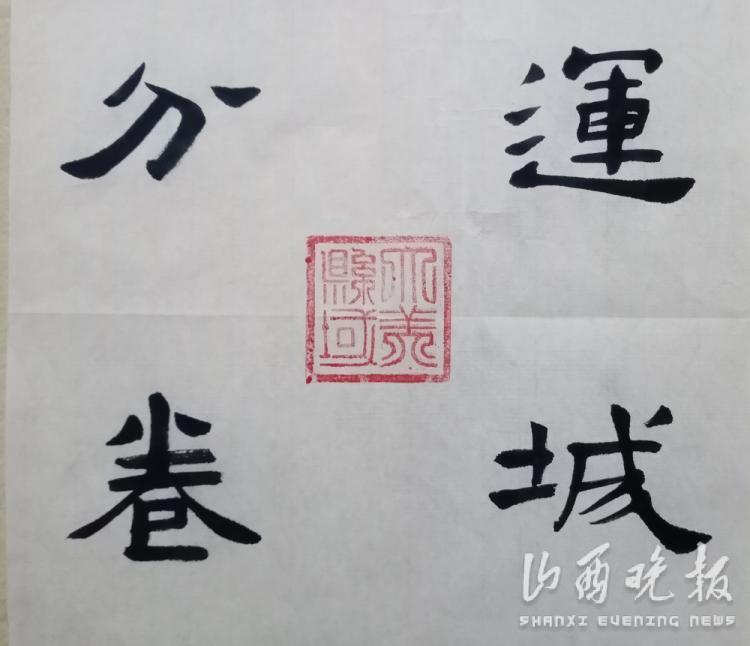 運城
分卷
大美
縣域
山西晚报
SHANXI EVENING NEWS